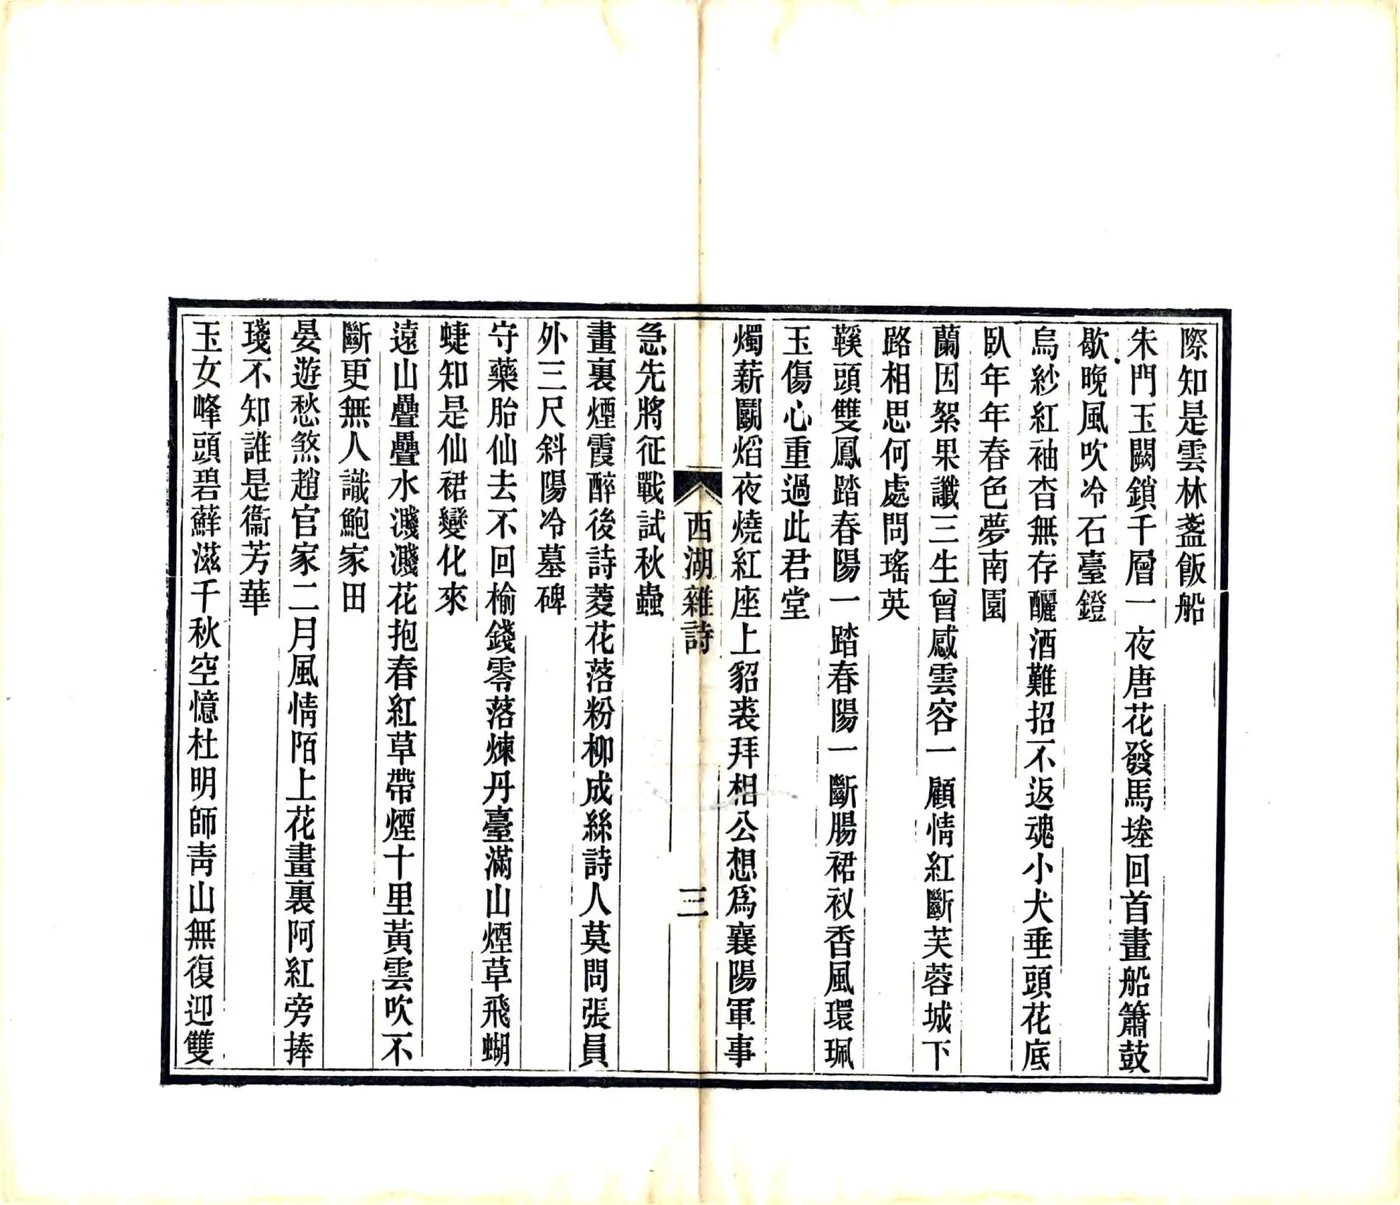 際知是雲林盞飯船
朱門玉闕鎖千層一夜唐花發馬塍回首畫船簫鼓
歇晚風吹冷石臺鐙
烏紗紅袖杳無存釃酒難招不返魂小犬垂頭花底
臥年年春色夢南園
蘭因絮果讖三生曾感雲容一顧情紅斷芙蓉城下
路相思何處問瑤英
鞵頭雙鳳踏春陽一踏春陽一斷腸裙衩香風環珮
玉傷心重過此君堂
燭薪鬭熖夜燒紅座上貂裘拜相公想爲襄陽軍事
西湖雜詩
三
急先將征戰試秋蟲
畫裏煙霞醉後詩菱花落粉柳成絲詩人莫問張員
外三尺斜陽冷墓碑
守藥胎仙去不回榆錢零落煉丹臺滿山煙草飛蝴
蜨知是仙裙變化來
遠山疊疊水濺濺花抱春紅草帶煙十里黃雲吹不
斷更無人識鮑家田
晏遊愁煞趙官家二月風情陌上花畫裏阿紅旁捧
琖不知誰是衞芳華
玉女峰頭碧蘚滋千秋空憶杜明師靑山無復迎雙